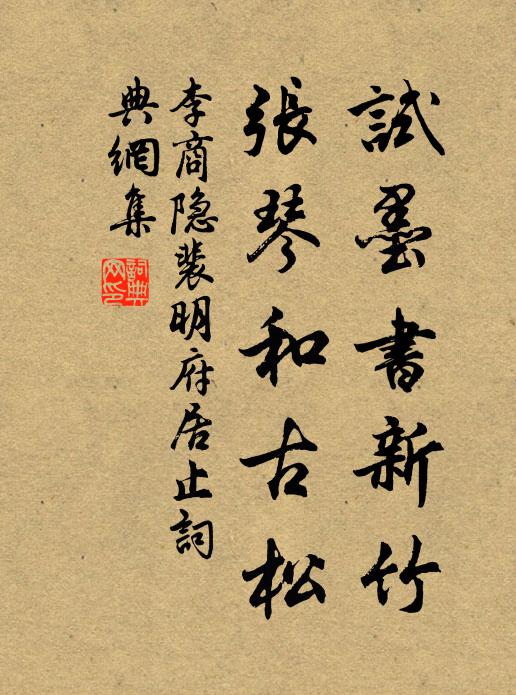 試墨書新竹
張琴和古松
李商隐裴明府居止詞
典網集
詞典
网印